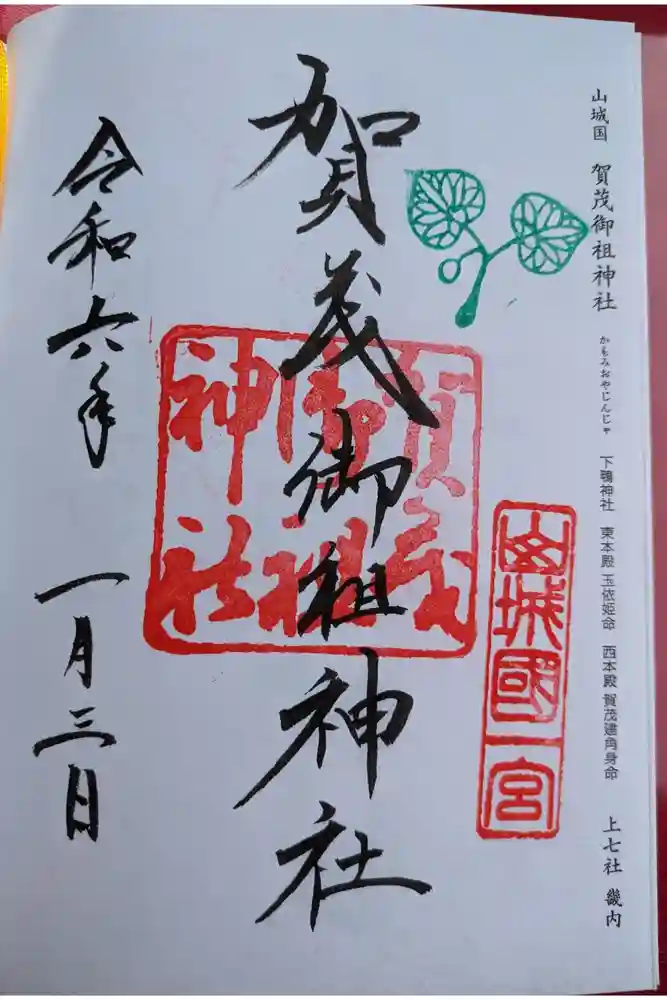 山城国 賀茂御祖神社 かもみおやじんじゃ 下鴨神社 東本殿 玉依姫命 西本殿 賀茂建角身命 上七社 畿内
山城國一宮
賀茂御祖神社
賀茂
御祖
神社
令和六年 一月三日